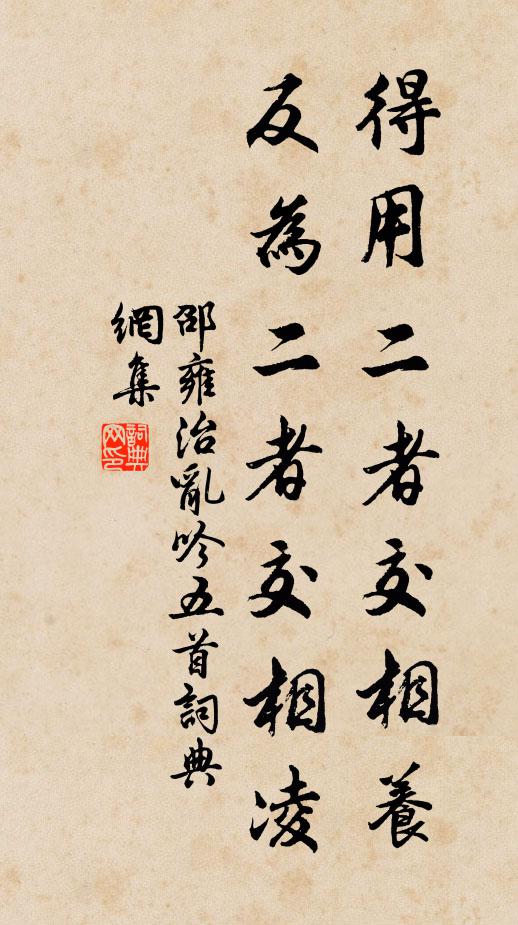 得用二者交相養
反為二者交相凌
邵雍治亂吟五首詞典
網集
詞典
网印